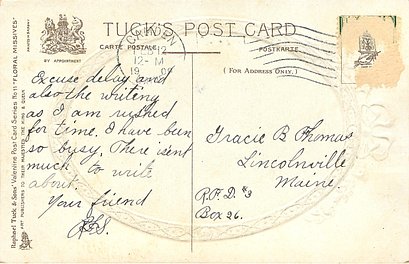 TUCK'S POST CARD
CARTE POSTALE
POSTKARTE
BY APPOINTMENT
(FOR ADDRESS ONLY.)
12-M
19
Raphael Tuck & Sons' Valentine Post Card Series No 11 "FLORAL MISSIVES"
ART PUBLISHERS TO THEIR MAJESTIES THE KING & QUEEN
Excuse delay and
also the writing
as I am rushed
for time. I have been
so busy. There isent
much to write
about.
Your friend
Gracie B Thomas
Lincolnville
Maine.
R.F.D. #3
Box 26.